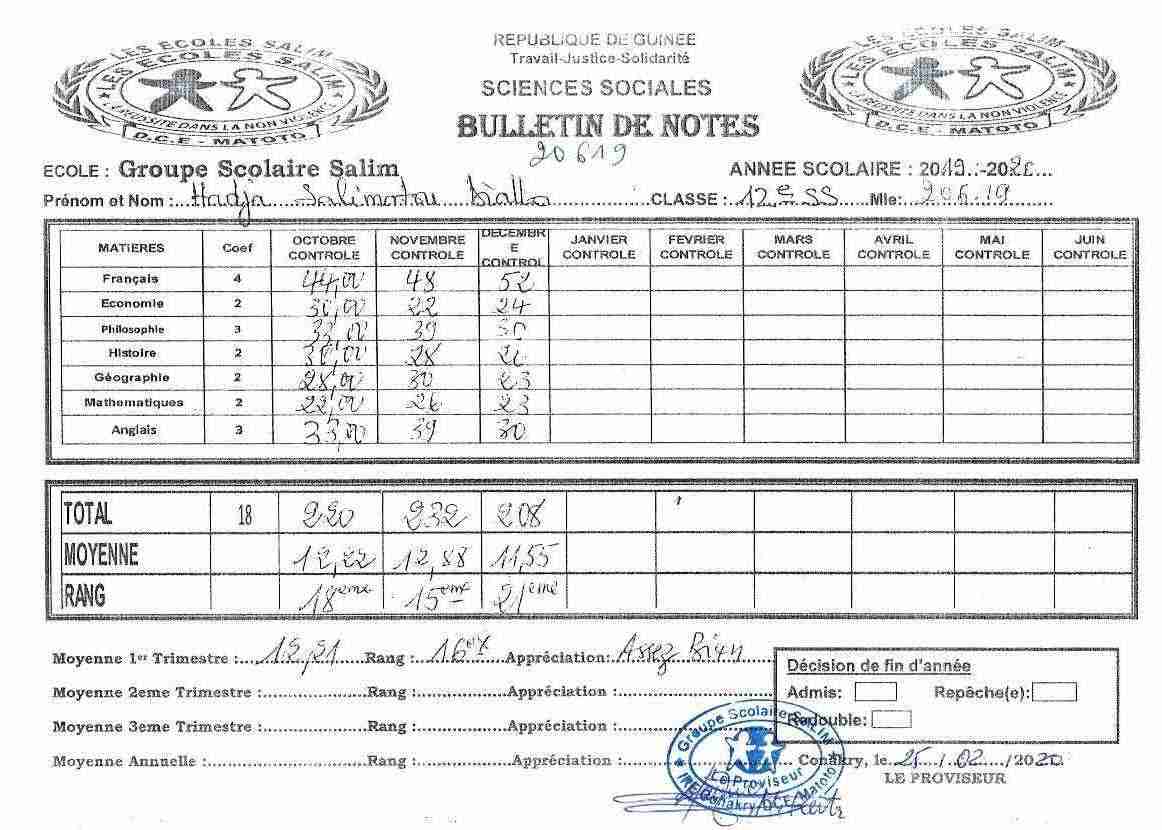 LES ECOLES SALIM
LES ECOLES SALIM
LA REUSSITE DANS LA NON VIOLENCE
D.C.E - MATOTO
REPUBLIQUE DE GUINEE
Travail-Justice-Solidarité
SCIENCES SOCIALES
BULLETIN DE NOTES
20619
LES ECOLES SALIM
LES ECOLES SALIM
LA REUSSITE DANS LA NON VIOLENCE
D.C.E - MATOTO
ECOLE : Groupe Scolaire Salim ANNEE SCOLAIRE : 2019.-2020...
Prénom et Nom :...Hadja Salimatou Diallo CLASSE : 12e SS Mle: 20619
MATIERES Coef OCTOBRE CONTROLE NOVEMBRE CONTROLE DECEMBRE CONTROL JANVIER CONTROLE FEVRIER CONTROLE MARS CONTROLE AVRIL CONTROLE MAI CONTROLE JUIN CONTROLE
Français 4 44,00 48 52
Economie 2 30,00 22 24
Philosophie 3 33,00 39 30
Histoire 2 30,00 28
Géographie 2 28,00 30 23
Mathematiques 2 22,00 26 23
Anglais 3 33,00 39 30
TOTAL 18 220 232 208
MOYENNE 12,22 12,88 11,55
RANG 18eme 15eme 21eme
Moyenne 1er Trimestre : 12,21 Rang : 16ex Appréciation: Assez Bien
Moyenne 2eme Trimestre : Rang : Appréciation :
Moyenne 3eme Trimestre : Rang : Appréciation :
Moyenne Annuelle : Rang : Appréciation :
Décision de fin d'année
Admis: Repêche(e):
Redouble:
Groupe Scolaire SALIM
Le Proviseur
IRE/Conakry DCE/Matoto
Conakry, le 25 / 02 /2020
LE PROVISEUR